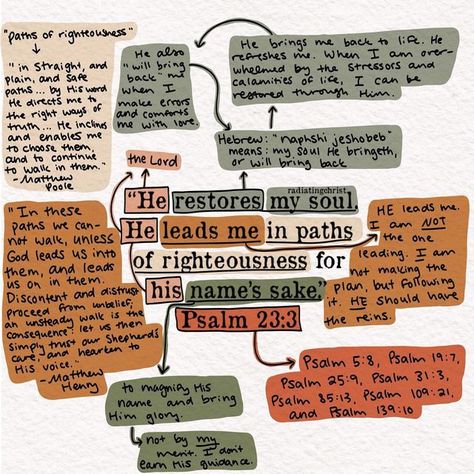 "paths of righteousness"
"in straight, and
plain, and safe
paths... by His word
He directs me to
the right ways of
truth... He inclins
and enables me
to choose them,
and to continue
to walk in them."
-Matthew
Poole
He also
"will bring
back" me
when I
make errors
and comforts
me with love
He brings me back to life. He
refreshes me. When I am over-
whelmed by the stressors and
calamities of life, I can be
restored through Him.
Hebrew: "naphshi jeshobeb"
means: my soul He bringeth,
or will bring back
the Lord
radiatingchrist
"He restores my soul.
He leads me in paths
of righteousness for
his name's sake."
Psalm 23:3
"In these
paths we can-
not walk, unless
God leads us into
them, and leads
us on in them.
Discontent and distrust
proceed from unbelief,
an unsteady walk is the
consequence: let us then
simply trust our Shepherds
care, and hearken to
His voice."
-Matthew
Henry
HE leads me.
I am NOT
the one
leading. I am
not making the
plan, but following
it. HE should have
the reins.
to magnify His
name and bring
Him glory.
not by my
merit. I don't
earn His guidance.
Psalm 5:8, Psalm 19:7,
Psalm 25:9, Psalm 31:3,
Psalm 85:13, Psalm 109:21,
and Psalm 139:10